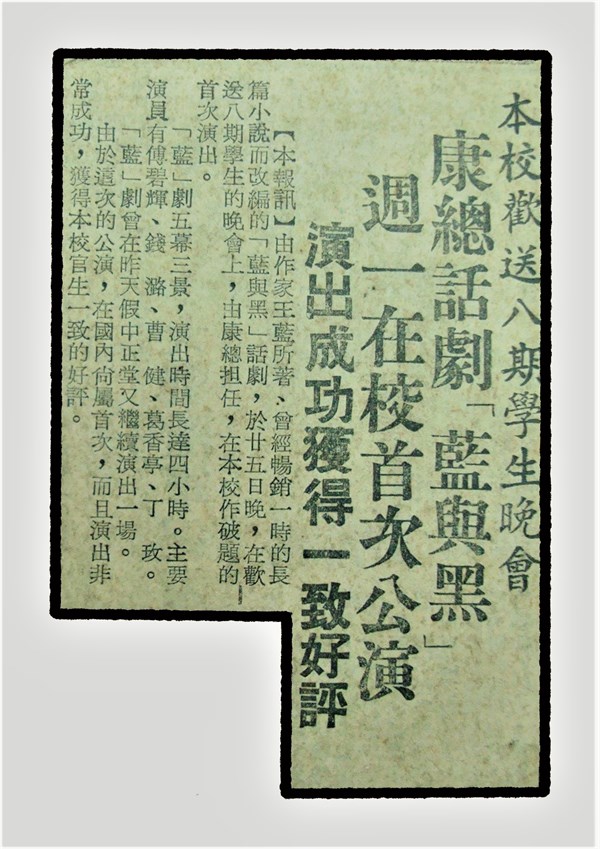 本校歡送八期學生晚會
康總話劇「藍與黑」
週一在校首次公演
演出成功獲得一致好評
【本報訊】由作家王藍所著、曾經暢銷一時的長
篇小說而改編的「藍與黑」話劇，於廿五日晚，在歡
送八期學生的晚會上，由康總担任，在本校作破題的
首次演出。
「藍」劇五幕三景，演出時間長達四小時。主要
演員有傅碧輝、錢　璐、曹　健、葛香亭、丁　玫。
「藍」劇曾在昨天假中正堂又繼續演出一場。
由於這次的公演，在國內尙屬首次，而且演出非
常成功，獲得本校官生一致的好評。